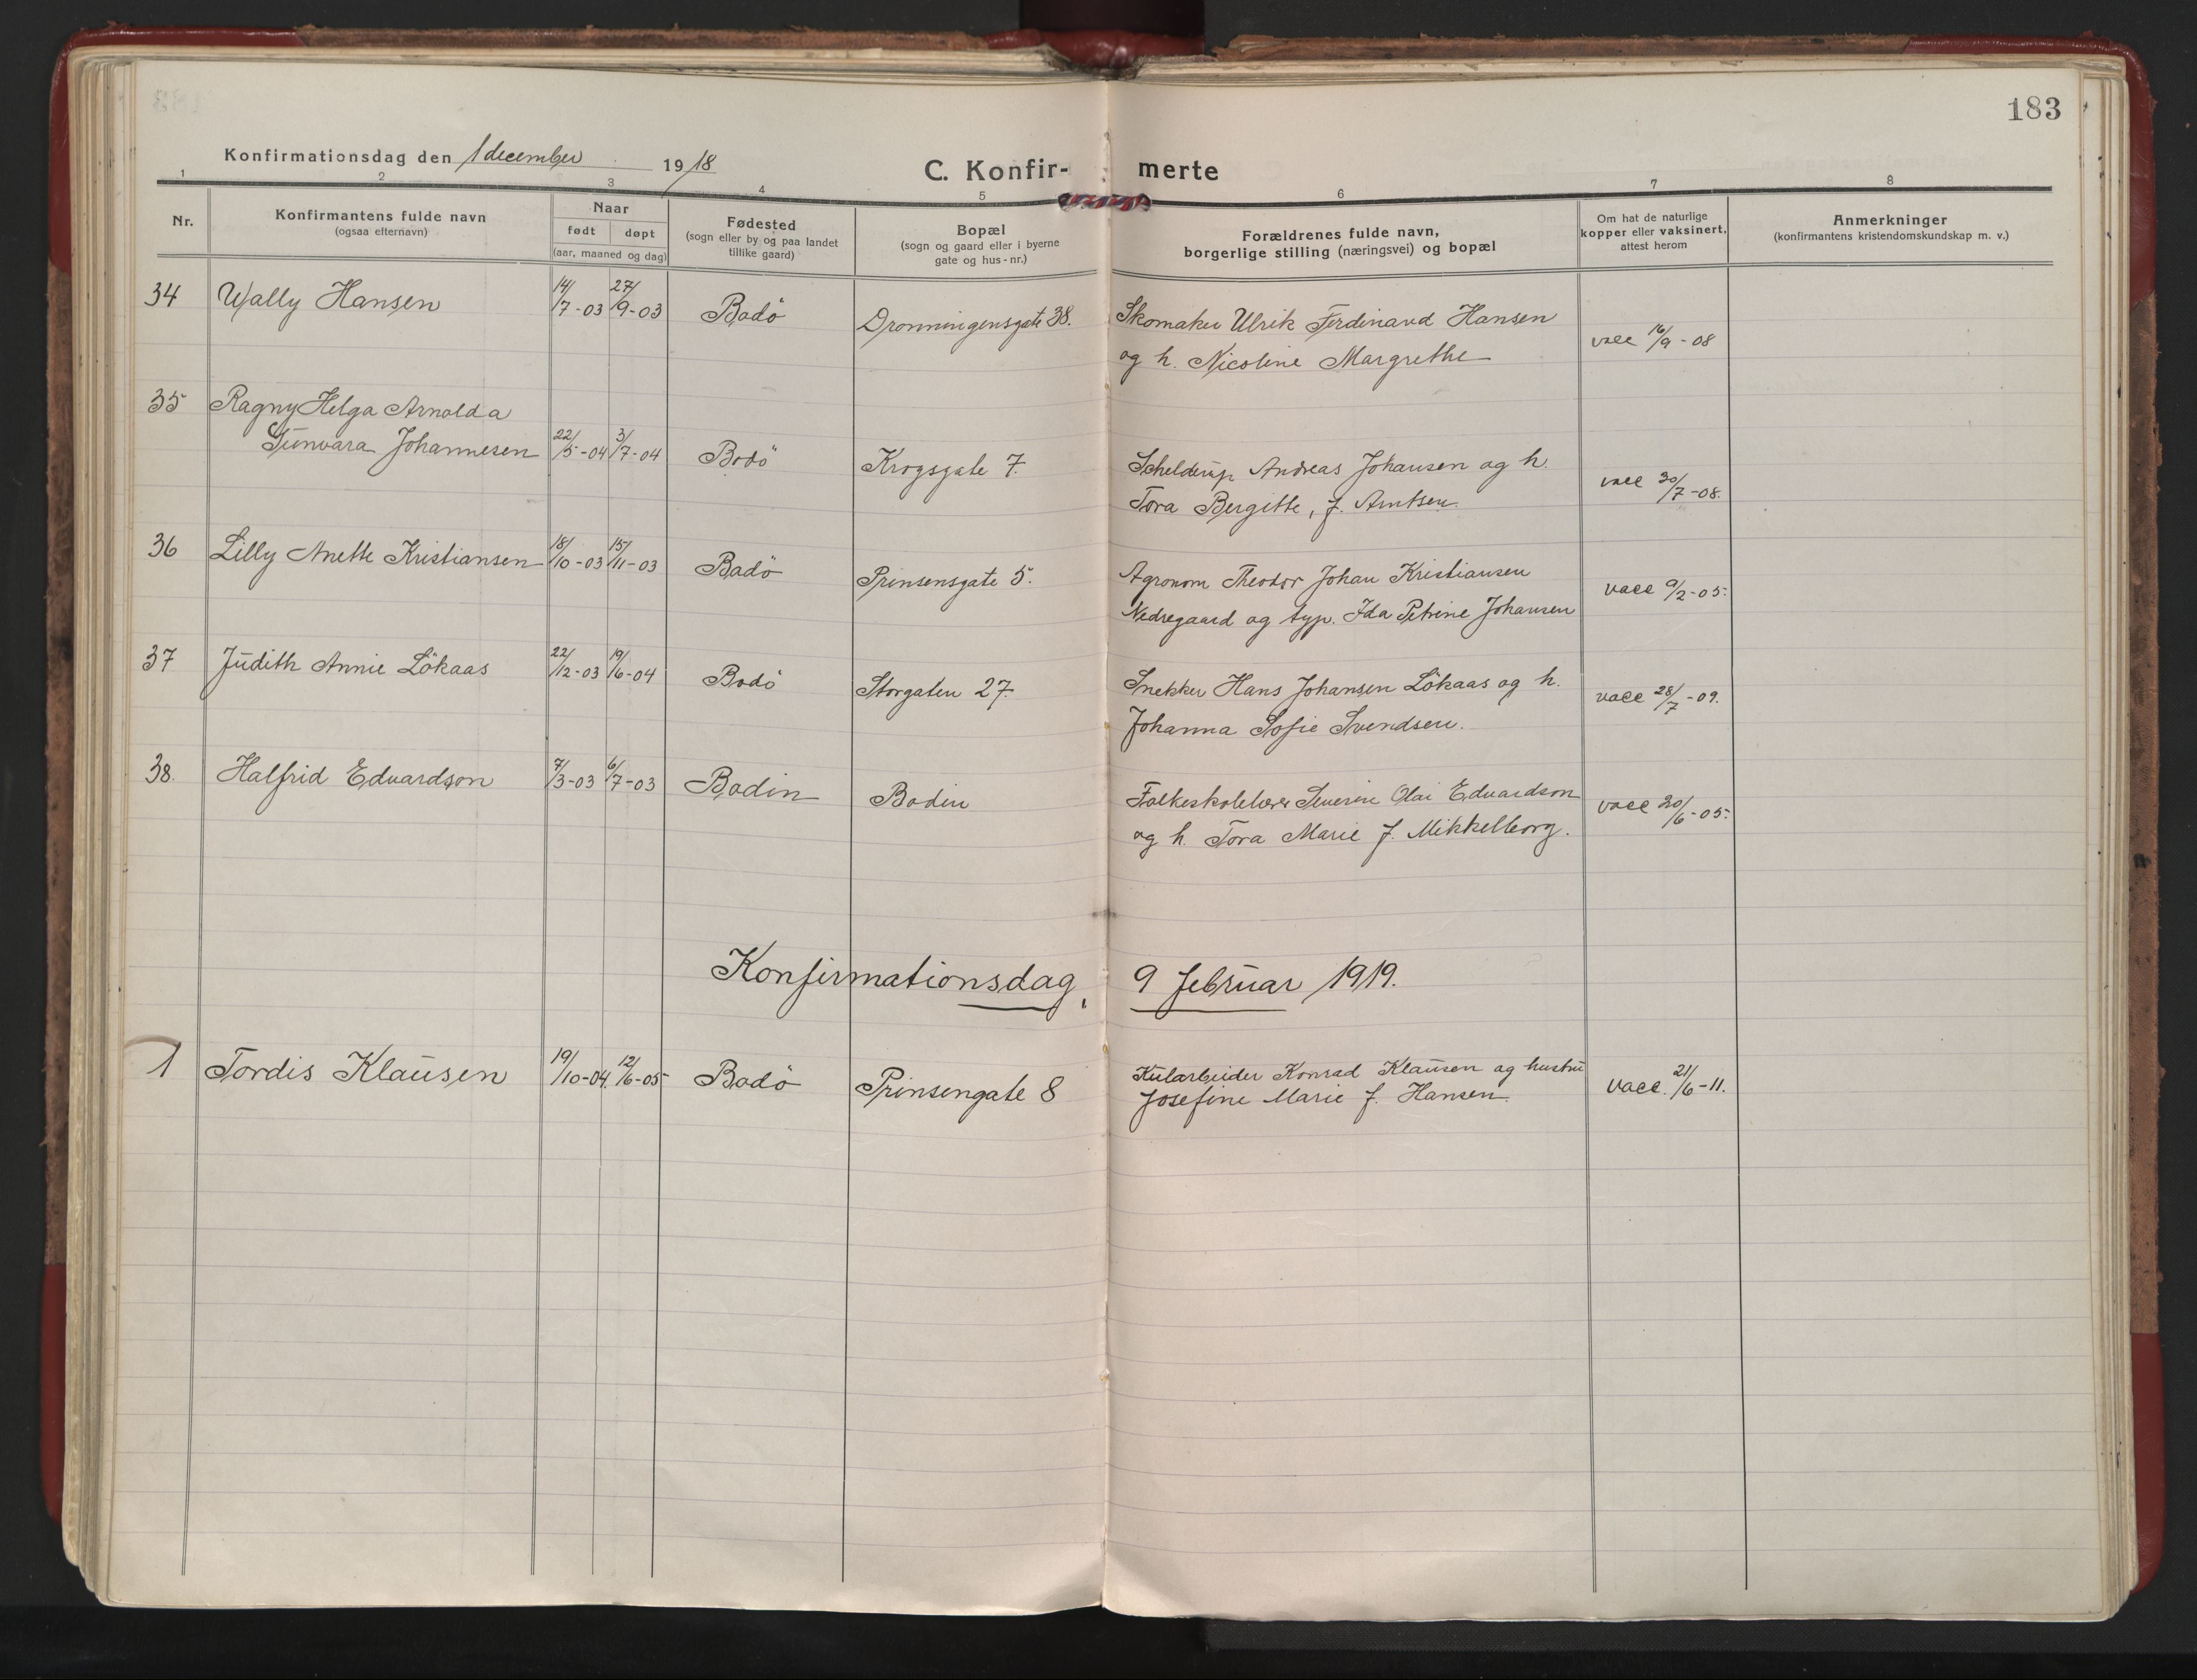 183
Konfirmationsdag den 1 december 1918
C. Konfir- merte
1 2 3 4 5 6 7 8
Nr.
Konfirmantens fulde navn
(ogsaa efternavn)
Naar
født døpt
(aar, maaned og dag)
Fødested
(sogn eller by og paa landet
tillike gaard)
Bopæl
(sogn og gaard eller i byerne
gate og hus-nr.)
Forældrenes fulde navn,
borgerlige stilling (næringsvei) og bopæl
Om hat de naturlige
kopper eller vaksinert,
attest herom
Anmerkninger
(konfirmantens kristendomskundskap m. v.)
34 Wally Hansen 14/7-03 27/9-03 Bodö Dronningensgate 38. Skomaker Ulrik Ferdinand Hansen vacc 16/9-08
og h. Nicoline Margrethe
35 Ragny Helga Arnolda
Gunvara Johannesen 22/5-04 3/7-04 Bodö Krogsgate 7. Schelderup Andreas Johansen og h. vacc 30/7-08.
Tora Bergitte, f. Arntsen.
36 Lilly Anette Kristiansen 18/10-03 15/11-03 Bodö Prinsensgate 5. Agronom Theodor Johan Kristiansen vacc 9/2-05.
Nedregaard og typ. Ida Petrine Johansen
37 Judith Annie Lökaas 22/12-03 19/6-04 Bodö Storgaten 27. Snekker Hans Johansen Lökaas og h. vacc 28/7-09.
Johanna Sofie Svendsen.
38. Halfrid Edvardson 7/3-03 6/7-03 Bodin Bodin Folkeskolelærer Severin Olai Edvardson vacc 30/6-05.
og h. Tora Marie f. Mikkelborg.
Konfirmationsdag, 9 februar 1919.
1 Tordis Klausen 19/10-04. 12/6-05 Bodö Prinsengate 8 Kularbeider Konrad Klausen og hustru vacc. 21/6-11.
Josefine Marie f. Hansen.